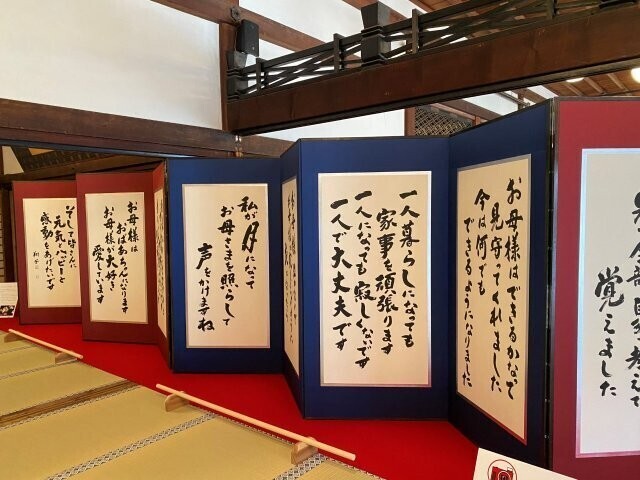 覚えました
お母様はできるかなで
見守ってくれました
今は何でも
できるようになりました
一人暮らしになっても
家事を頑張ります
一人になっても寂しくないです
一人で大丈夫です
私が月になって
お母さまを照らして
声をかけますね
お母様は
おばあちゃんになります
お母様が大好き
愛しています
そして皆さんに
元気とハッピーと
感動をあげたいです